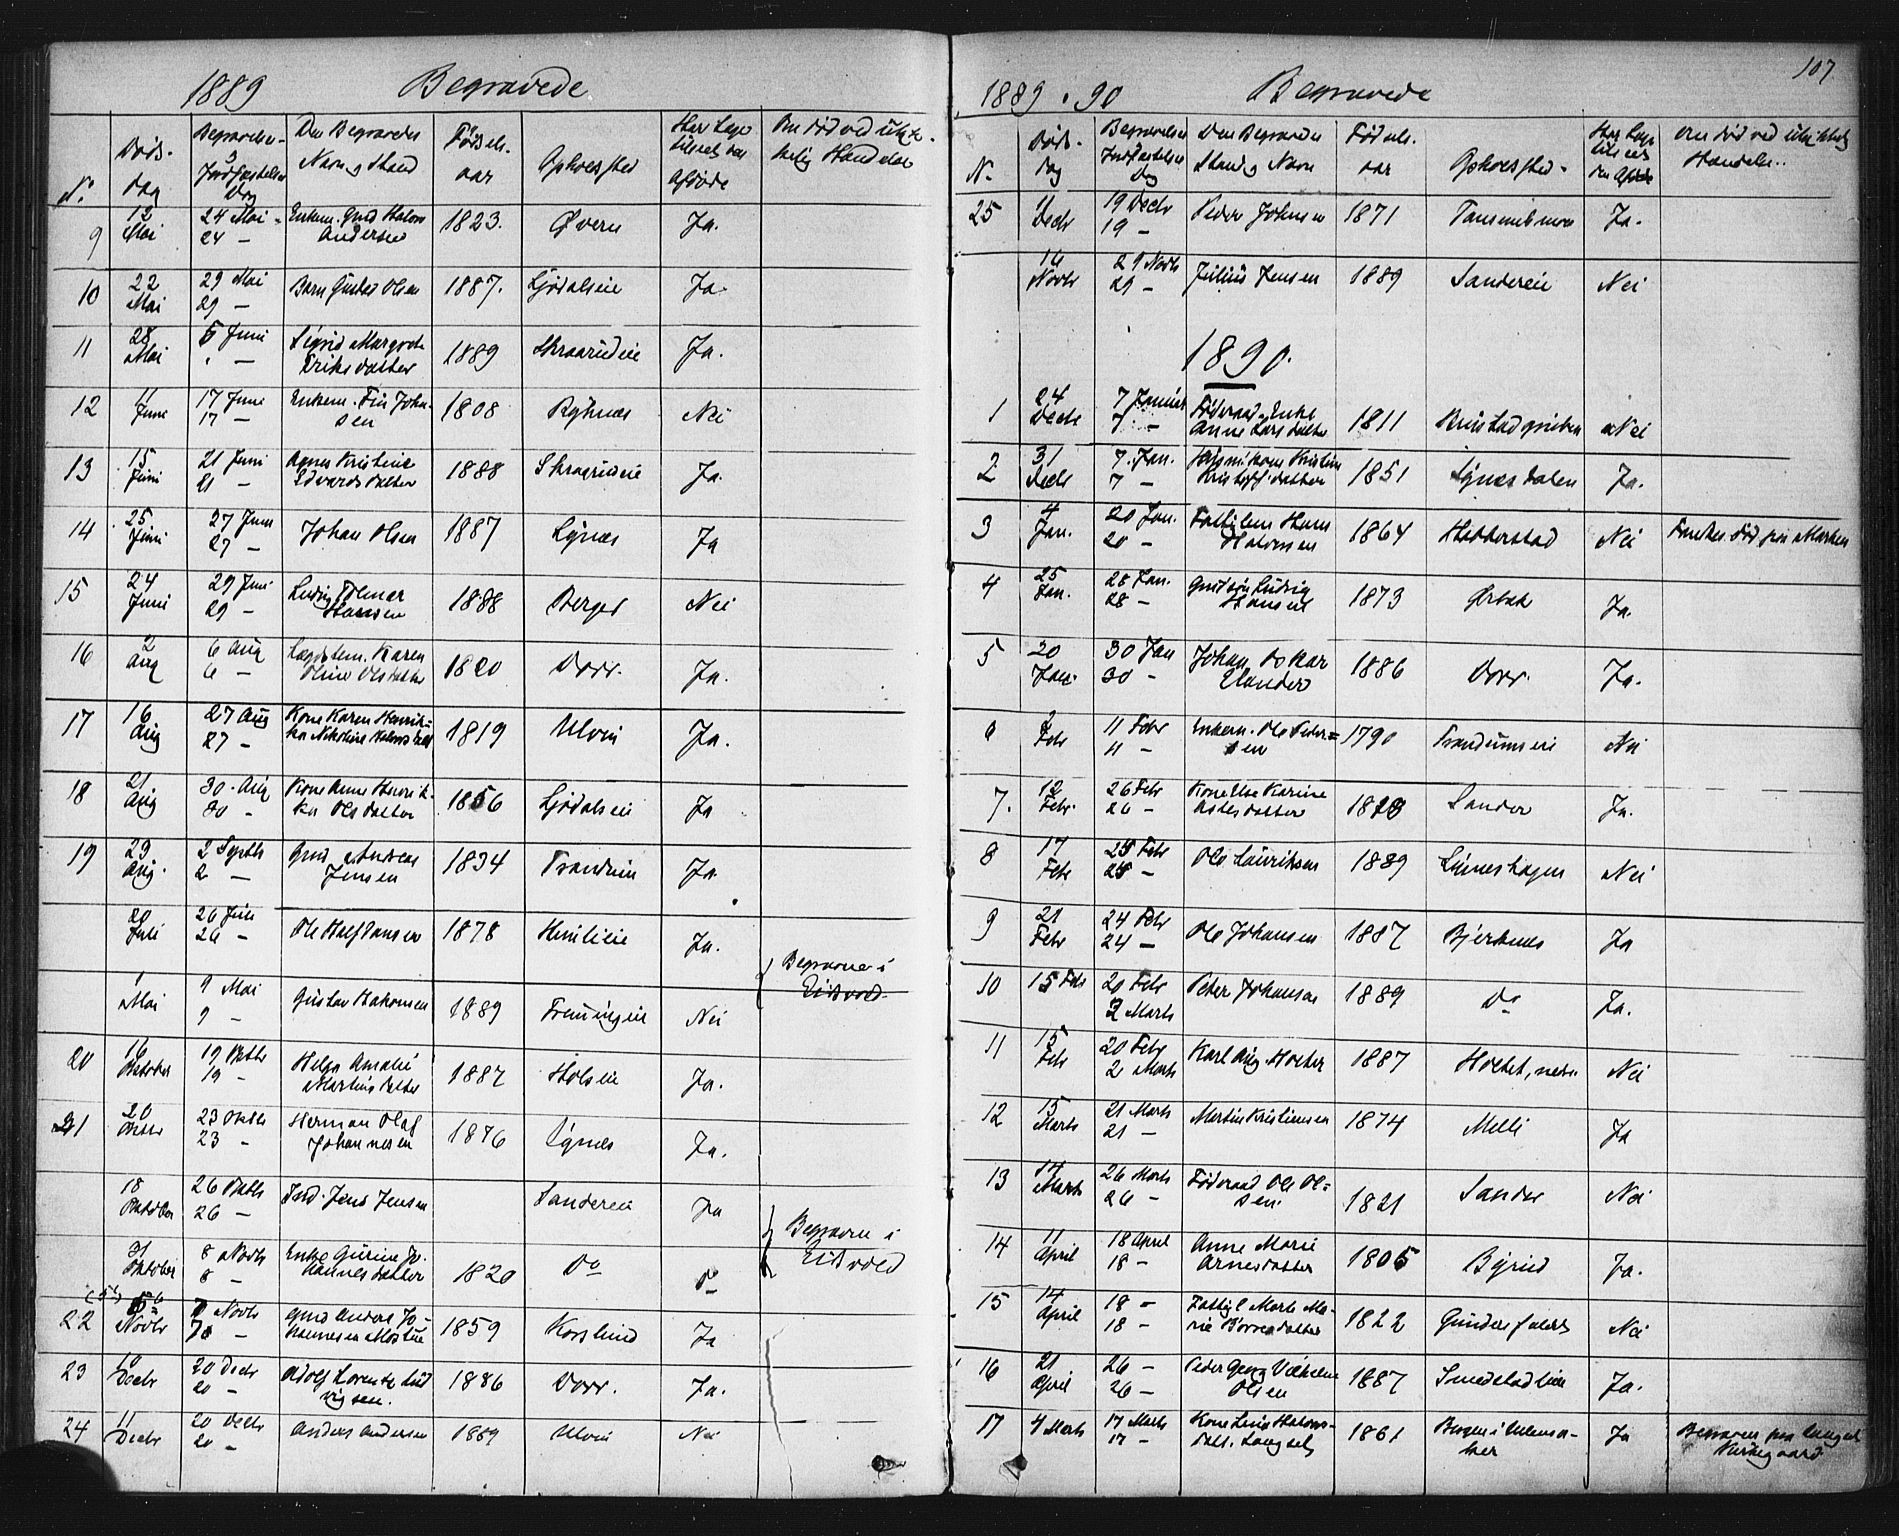 1889 Begravede
No Døds- dag
Begravelses- & Jordfæstelses Dag
Den Begravedes Navn & Stand
Fødsels- aar
Opholdssted
Har Læge tilseet den Afdøde
Om død ved ulykkelig Hændelse
9 12 Mai 24 Mai 24 — Enkem. Gmd Halvor Andersen 1823. Øvern Ja.
10 22 Mai 29 Mai 29 — Barn Gustav Olsen 1887. Ljødalseie Ja.
11 28 Mai 5 Juni — Sigrid Margrete Eriksdatter 1889 Skraarudeie Ja.
12 11 Juni 17 Juni 17 — Enkem. Johansen 1808 Byhnæs Nei
13 15 Juni 21 Juni 21 — Agnes Kristine Edvardsdatter 1888 Ja.
14 25 Juni 27 Juni 27 — Johan Olsen 1887 Lynæs Ja
15 24 Juni 29 Juni 29 — Ludvig Hansen 1888 Berger Nei
16 2 Aug 6 Aug 6 — Lægdslem. Karen Oline Olsdatter 1820 Dorr. Ja.
17 16 Aug 27 Aug 27 — Kone Karen Henrikka Nikoline 1819 Ulvin Ja.
18 21 Aug 30. Aug 30 - Kone Anne Henrikka Olsdatter 1856 Ljødalseie Ja
19 29 Aug. 2 Septb 2 — Gmd Andreas Jensen 1834 Ja
20 Juli 26 Juli 26 — Ole Halfdansen 1878 Ja.
1 Mai 9 Mai 9 — Gustav Hakonsen 1889 Nei
Begravne i Eidsvold
20 16 Oktober 19 Oktb 19 — Helga Amalie Martinsdatter 1887 Holseie Ja.
21 20 Oktbr 23 Oktb 23 — Herman Olaf Johannesen 1876 Lynæs Ja.
18 Oktober 26 Oktb 26 — Ind. Jens Jensen Sandereie Ja
31 Oktober 8 Novb 8 — Enke Gurine Johannesdatter 1820 Do Do
Begravne i Eidsvold
22 Novbr Novbr — Gmd Anders Johannesen 1859 Korslund Ja
23 10 Decbr 20 Decbr 20 - Adolf Lorentz Ludvigsen. 1886 Dorr. Ja.
24 11 Decbr 20 Decbr 20 — Anders Andersen 1889 Ulvin Nei
107
1889 . 90 Begravede
No Døds- dag
Begravelses Jordfæstelses Dag
Den Begravedes Stand & Navn
Fødsels- aar
Opholdssted.
Har Læge tilseet den Afdøde
Om død ved ulykkelig Hændelse..
25 11 Decbr 19 Decbr 19 — Peder Johnsen 1871 Ja.
16 Novbr 29 Novb 29 — Julius Jensen 1889 Sandereie Nei
1890.
1 24 Decbr 7 Januar 7 — Føderaad. Enke Anne Larsdatter 1811 Nei
2 31 Decbr 7. Jan. 7 — Kristine Kristoff.datter 1851 Lynesdalen Ja.
3 4 Jan. 20 Jan. 20 — Fattiglem Hans Halvorsen 1864 Habberstad Nei Fandtes død paa Marken
4 25 Jan. 28 Jan. 28 — Gmdsøn Ludvig Hansen 1873 Ørbæk Ja.
5 20 Jan. 30 Jan 30 - Johan Oskar 1886 Dorr. Ja.
6 2 Febr 11 Febr 11 — Enkem. Ole Pedersen 1790 Trandumseie Nei
7. 12 Febr. 26 Febr 26 — Kone Else Karine 18 Sander Ja.
8 17 Febr 25 Febr 25 — Ole Lauritsen 1889 Lüneshagen Nei
9 21 Febr 24 Febr 24 — Ole Johansen 1887 Bjerknes Ja
10 15 Febr 20 Febr 2 Marts Peter Johansen 1889 Do Ja.
11 15 Febr 20 Febr 2 Marts Karl Aug. Holter 1887 Holtet, nedre Nei
12 15 Marts 21 Marts 21 — Martin Kristiansen 1874 Melli Ja
13 14 Marts 26 Marts 26 — Føderaad Ole Olsen 1821 Sander Nei
14 11 April 18 April 18 — Anne Marie Arnesdatter 1805 Byrud Ja.
15 14 April 18 - 18 — Fattigl. Marte Marie 1822 Nei
16 21 April 26 — 26 — Peder Georg Vilhelm Olsen 1887 Ja.
17 4 Marts 17 Marts 17 — Kone Lina Halvorsdatt. Langset 1861 Ja Begraven paa Langset Kirkegaard